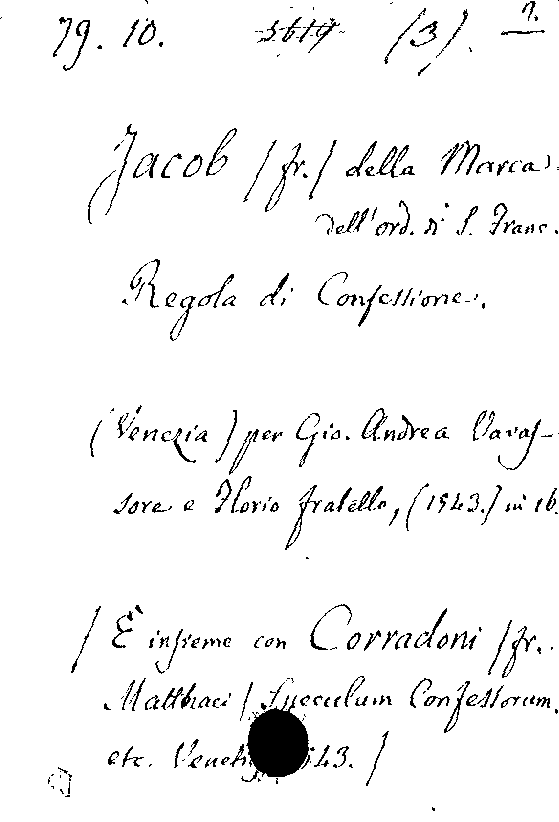 79. 10. 5619 (3). 7.
Jacob /fr./ della Marca
dell'ord. di S. Franc.
Regola di Confessione.
(Venezia) per Gio. Andrea Vavas-
sore e Florio fratello, (1543.) in 16.
/ È insieme con Corradoni /fr.
Matthaei / Speculum Confessorum.
etc. Venetijs 1543. /